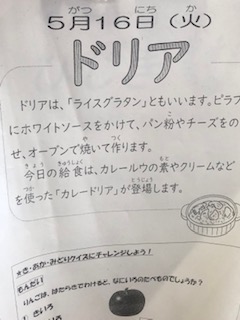 がつ にち か
5月16日（火）
ドリア
ドリアは、「ライスグラタン」ともいいます。ピラフ
こな
にホワイトソースをかけて、パン粉やチーズをの
や つく
せ、オーブンで焼いて作ります。
きょう きゅうしょく もと
今日の給食は、カレールウの素やクリームなど
つか とうじょう
を使った「カレードリア」が登場します。
★き・あか・みどりクイズにチャレンジしよう！
もんだい
りんごは、はたらきでわけると、なにいろのたべものでしょうか？
きいろ